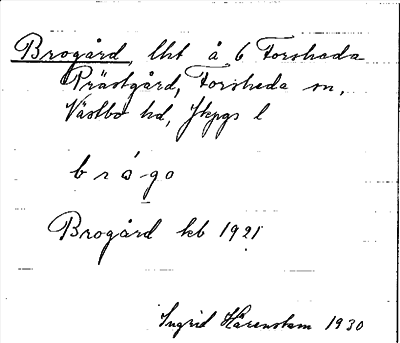 Brogård, lht å 6 Forsheda
Prästgård, Forsheda sn,
Västbo hd, Jkpgs l
b r ǻ - g o
Brogård kb 1921
Ingrid Härenstam 1930